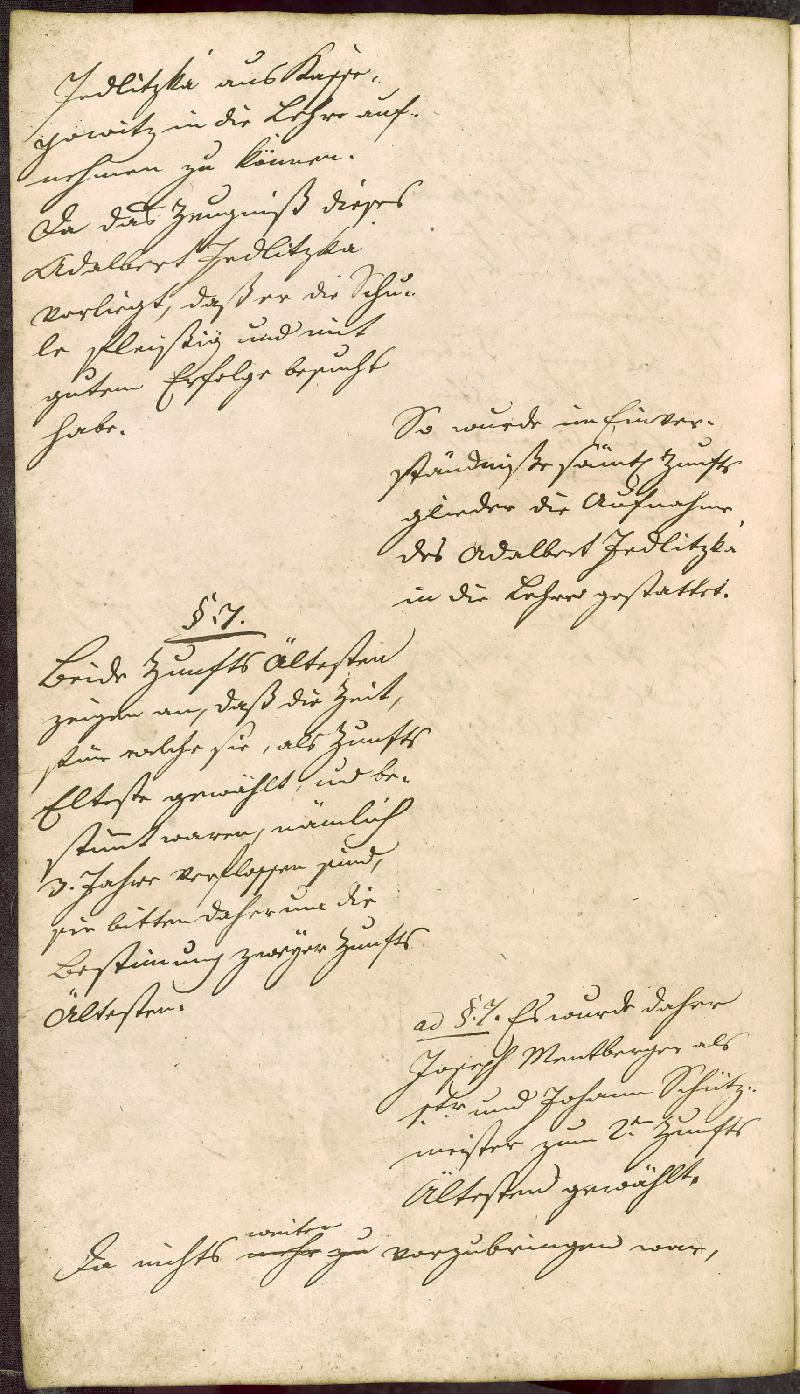 Jedlitzka aus Kasse-
gowitz in die Lehre auf-
nehmen zu können.
Da das Zeugniß dieses
Adalbert Jedlitzka
vorliegt, daß er die Schu-
le fleißig und mit
gutem Erfolge besucht
habe.
So wurde im Einver-
ständniße sämtl Zunfts
glieder die Aufnahme
des Adalbert Jedlitzka
in die Lehre gestattet.
§. 7.
Beide Zunfts Ältesten
zeigen an, daß die Zeit,
für welche sie, als Zunfts
Elteste gewählt, und be-
stimt waren, nämlich
3. Jahre verflossen sind,
sie bitten daher um die
Bestimung zweÿer Zunfts
Ältesten.
ad §. 7. Es wurde daher
Joseph Mentberger als
1ter und Johann Schütz-
meister zum 2ten Zunfts
Ältesten gewählt.
Da nichts weiter mehr zu vorzubringen war,